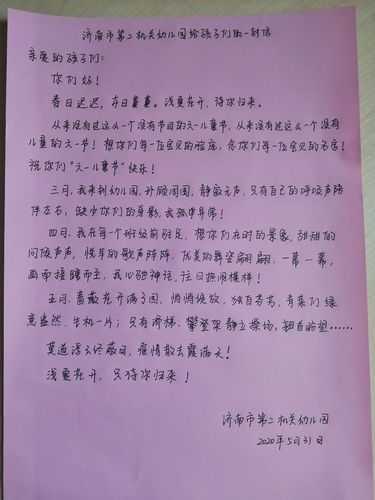 济南市第二机关幼儿园给孩子们的一封信
亲爱的孩子们：
你们好！
春日迟迟，卉木萋萋。浅夏在开，待你归来。
从来没有过这么一个没有节目的六一儿童节，从来没有过这么一个没有
儿童的六一节！想你们每一位会见的脸庞，念你们每一位会见的名字！
祝你们"六一儿童节"快乐！
三月，我来到幼儿园，环顾周围，静寂无声，只有自己的呼吸声陪
伴左右，缺少你们的身影，我孤单异常！
四月，我在每个班级前驻足，想你们在时的景象，甜甜的
问候声声，悦耳的歌声阵阵，优美的舞姿翩翩，一幕一幕，
画面接踵而至，我心驰神往，往日热闹模样！
五月，蔷薇花开满了园，悄悄绽放，独自芬芳，青菜们绿
意盎然，生机一片；只有滑梯、攀登架静立操场，翘首盼望……
莫道浮云终蔽日，疫情散去霞满天！
浅夏在开，只待你归来！
济南市第二机关幼儿园
2020年5月31日